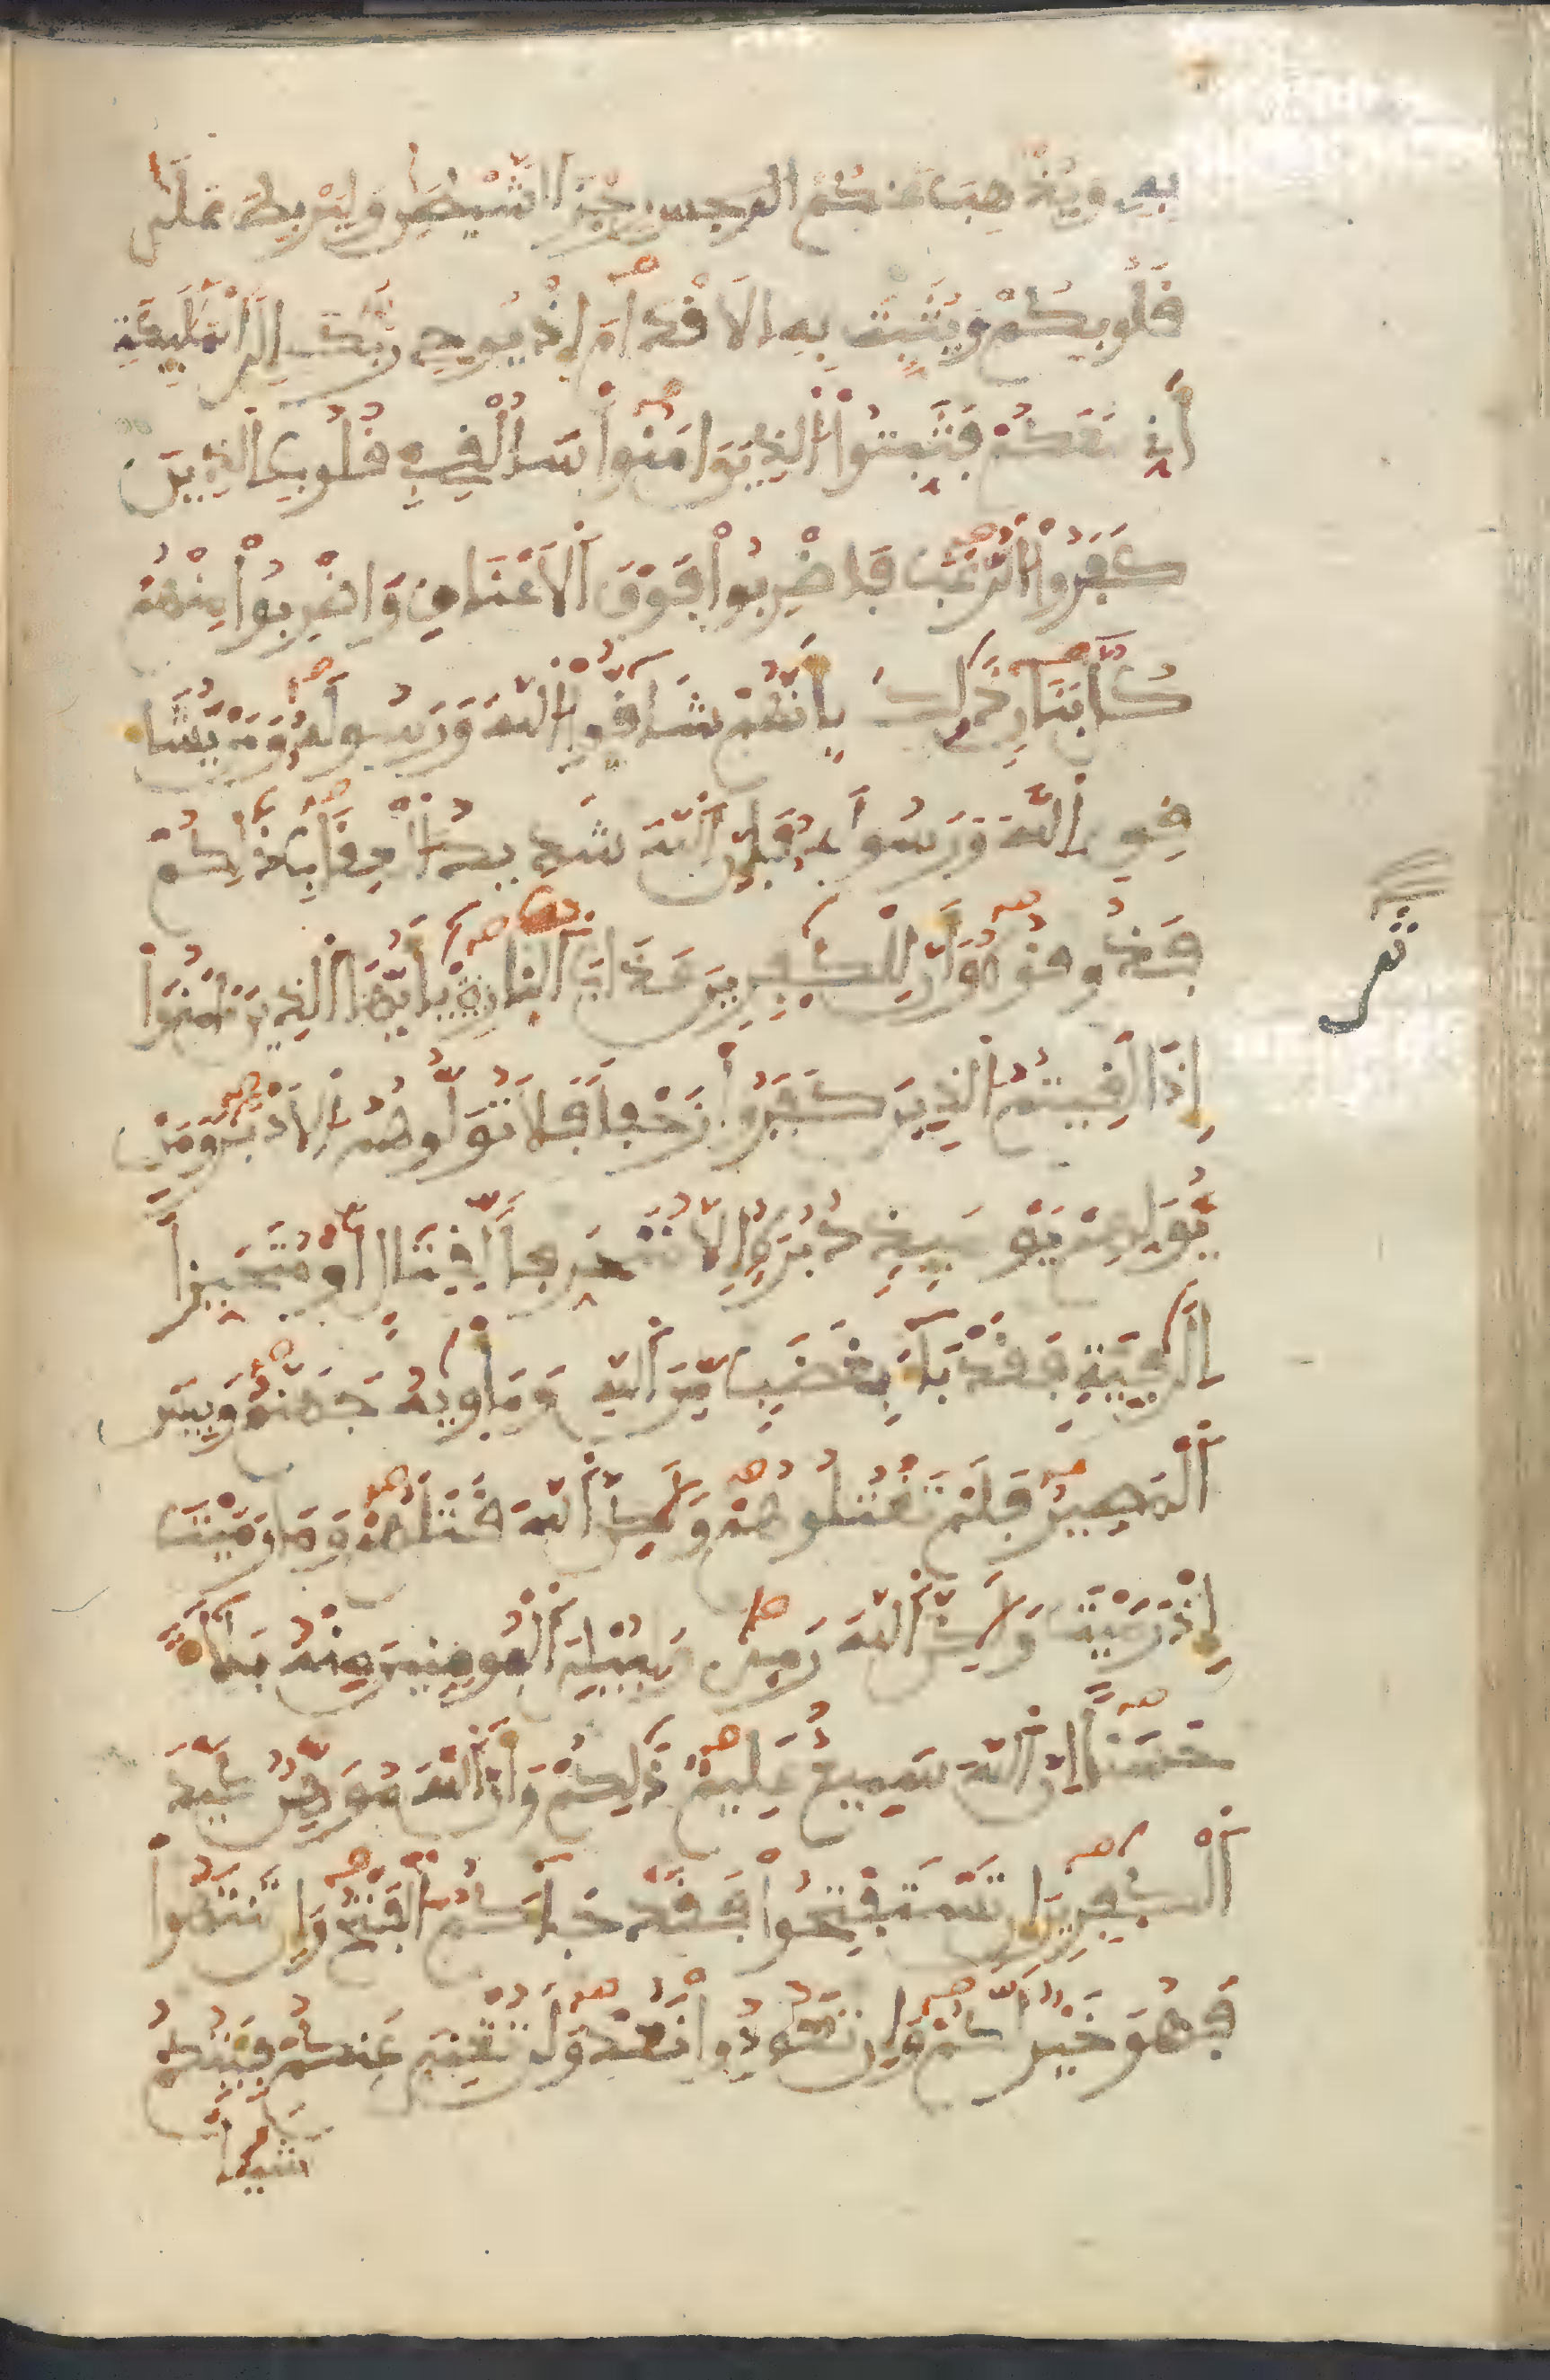 بِهِ وَيُذْهِبَ عَنكُمْ رِجْزَ ٱلشَّيْطَٰنِ وَلِيَرْبِطَ عَلَىٰ
قُلُوبِكُمْ وَيُثَبِّتَ بِهِ اِ۬لَاقْدَامَ إِذْ يُوحِي رَبُّكَ إِلَى ٱلْمَلَٰٓئِكَةِ
أَنِّي مَعَكُمْ فَثَبِّتُواْ ٱلذِينَ ءَامَنُواْ سَأُلْقِي فِي قُلُوبِ ٱلذِينَ
كَفَرُواْ ٱلرُّعْبَ فَاضْرِبُواْ فَوْقَ ٱلَاعْنَاقِ وَاضْرِبُواْ مِنْهُمْ
كُلَّ بَنَانٍ ذَٰلِكَ بِأَنَّهُمْ شَآقُّواْ ٱللَّهَ وَرَسُولَهُ وَمَنْ يُّشَا
قِقِ ٱللَّهَ وَرَسُولَهُ فَإِنَّ ٱللَّهَ شَدِيدُ ٱلْعِقَابِ ذَٰلِكُمْ
فَذُوقُوهُ وَأَنَّ لِلْكَٰفِرِينَ عَذَابَ ٱلنَّارِ يَٰٓأَيُّهَا ٱلذِينَ ءَامَنُواْ
إِذَا لَقِيتُمُ ٱلذِينَ كَفَرُواْ زَحْفاً فَلَا تُوَلُّوهُمُ اُ۬لَادْبَٰرَ وَمَنْ
يُّوَلِّهِمْ يَوْمَئِذٍ دُبُرَهُ إِلَّا مُتَحَرِّفاً لِّقِتَالٍ أَوْ مُتَحَيِّزاً
إِلَىٰ فِئَةٍ فَقَدْ بَآءَ بِغَضَبٍ مِّنَ ٱللَّهِ وَمَأْوِيٰهُ جَهَنَّمُ وَبِيسَ
ٱلْمَصِيرُ فَلَمْ تَقْتُلُوهُمْ وَلَٰكِنَّ ٱللَّهَ قَتَلَهُمْ وَمَا رَمَيْتَ
إِذْ رَمَيْتَ وَلَٰكِنَّ ٱللَّهَ رَمِىٰ وَلِيُبْلِيَ ٱلْمُومِنِينَ مِنْهُ بَلَآءً
حَسَناً اِنَّ ٱللَّهَ سَمِيعٌ عَلِيمٌ ذَٰلِكُمْ وَأَنَّ ٱللَّهَ مُوَهِّنٌ كَيْدَ
ٱلْكَٰفِرِينَ إِن تَسْتَفْتِحُواْ فَقَدْ جَآءَكُمُ ٱلْفَتْحُ وَإِن تَنتَهُواْ
فَهُوَ خَيْرٌ لَّكُمْ وَإِن تَعُودُواْ نَعُدْ وَلَن تُغْنِيَ عَنكُمْ فِئَتُكُمْ
شَيْـٔاً